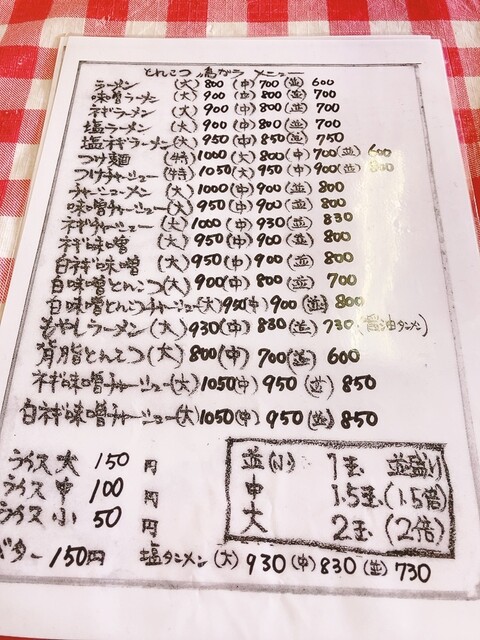 とんこつ 鳥がラ メニュー
ラーメン (大) 800 (中) 700 (並) 600
味噌ラーメン (大) 900 (中) 800 (並) 700
ネギラーメン (大) 900 (中) 800 (並) 700
塩ラーメン (大) 900 (中) 800 (並) 700
塩ネギラーメン (大) 950 (中) 850 (並) 750
つけ麺 (特) 1000 (大) 800 (中) 700 (並) 600
つけチャーシュー (特) 1050 (大) 950 (中) 900 (並) 800
チャーシューメン (大) 1000 (中) 900 (並) 800
味噌チャーシュー (大) 950 (中) 900 (並) 800
ネギチャーシュー (大) 1000 (中) 930 (並) 830
ネギ味噌 (大) 950 (中) 900 (並) 800
白ネギ味噌 (大) 950 (中) 900 (並) 800
白味噌とんこつ (大) 900 (中) 800 (並) 700
白味噌とんこつチャーシュー (大) 950 (中) 900 (並) 800
もやしラーメン (大) 930 (中) 830 (並) 730 (醤油タンメン)
背脂とんこつ (大) 800 (中) 700 (並) 600
ネギ味噌チャーシュー (大) 1050 (中) 950 (並) 850
白ネギ味噌チャーシュー (大) 1050 (中) 950 (並) 850
ライス 大 150 円
ライス 中 100 円
ライス 小 50 円
バター 150円
並(小) 1玉 並盛り
中 1.5玉 (1.5倍)
大 2玉 (2倍)
塩タンメン (大) 930 (中) 830 (並) 730